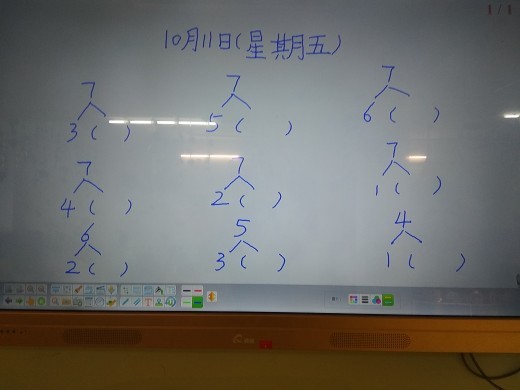 1/1
10月11日(星期五)
7 7 7
3( ) 5( ) 6( )
7 7 7
4( ) 2( ) 1( )
6 5 4
2( ) 3( ) 1( )